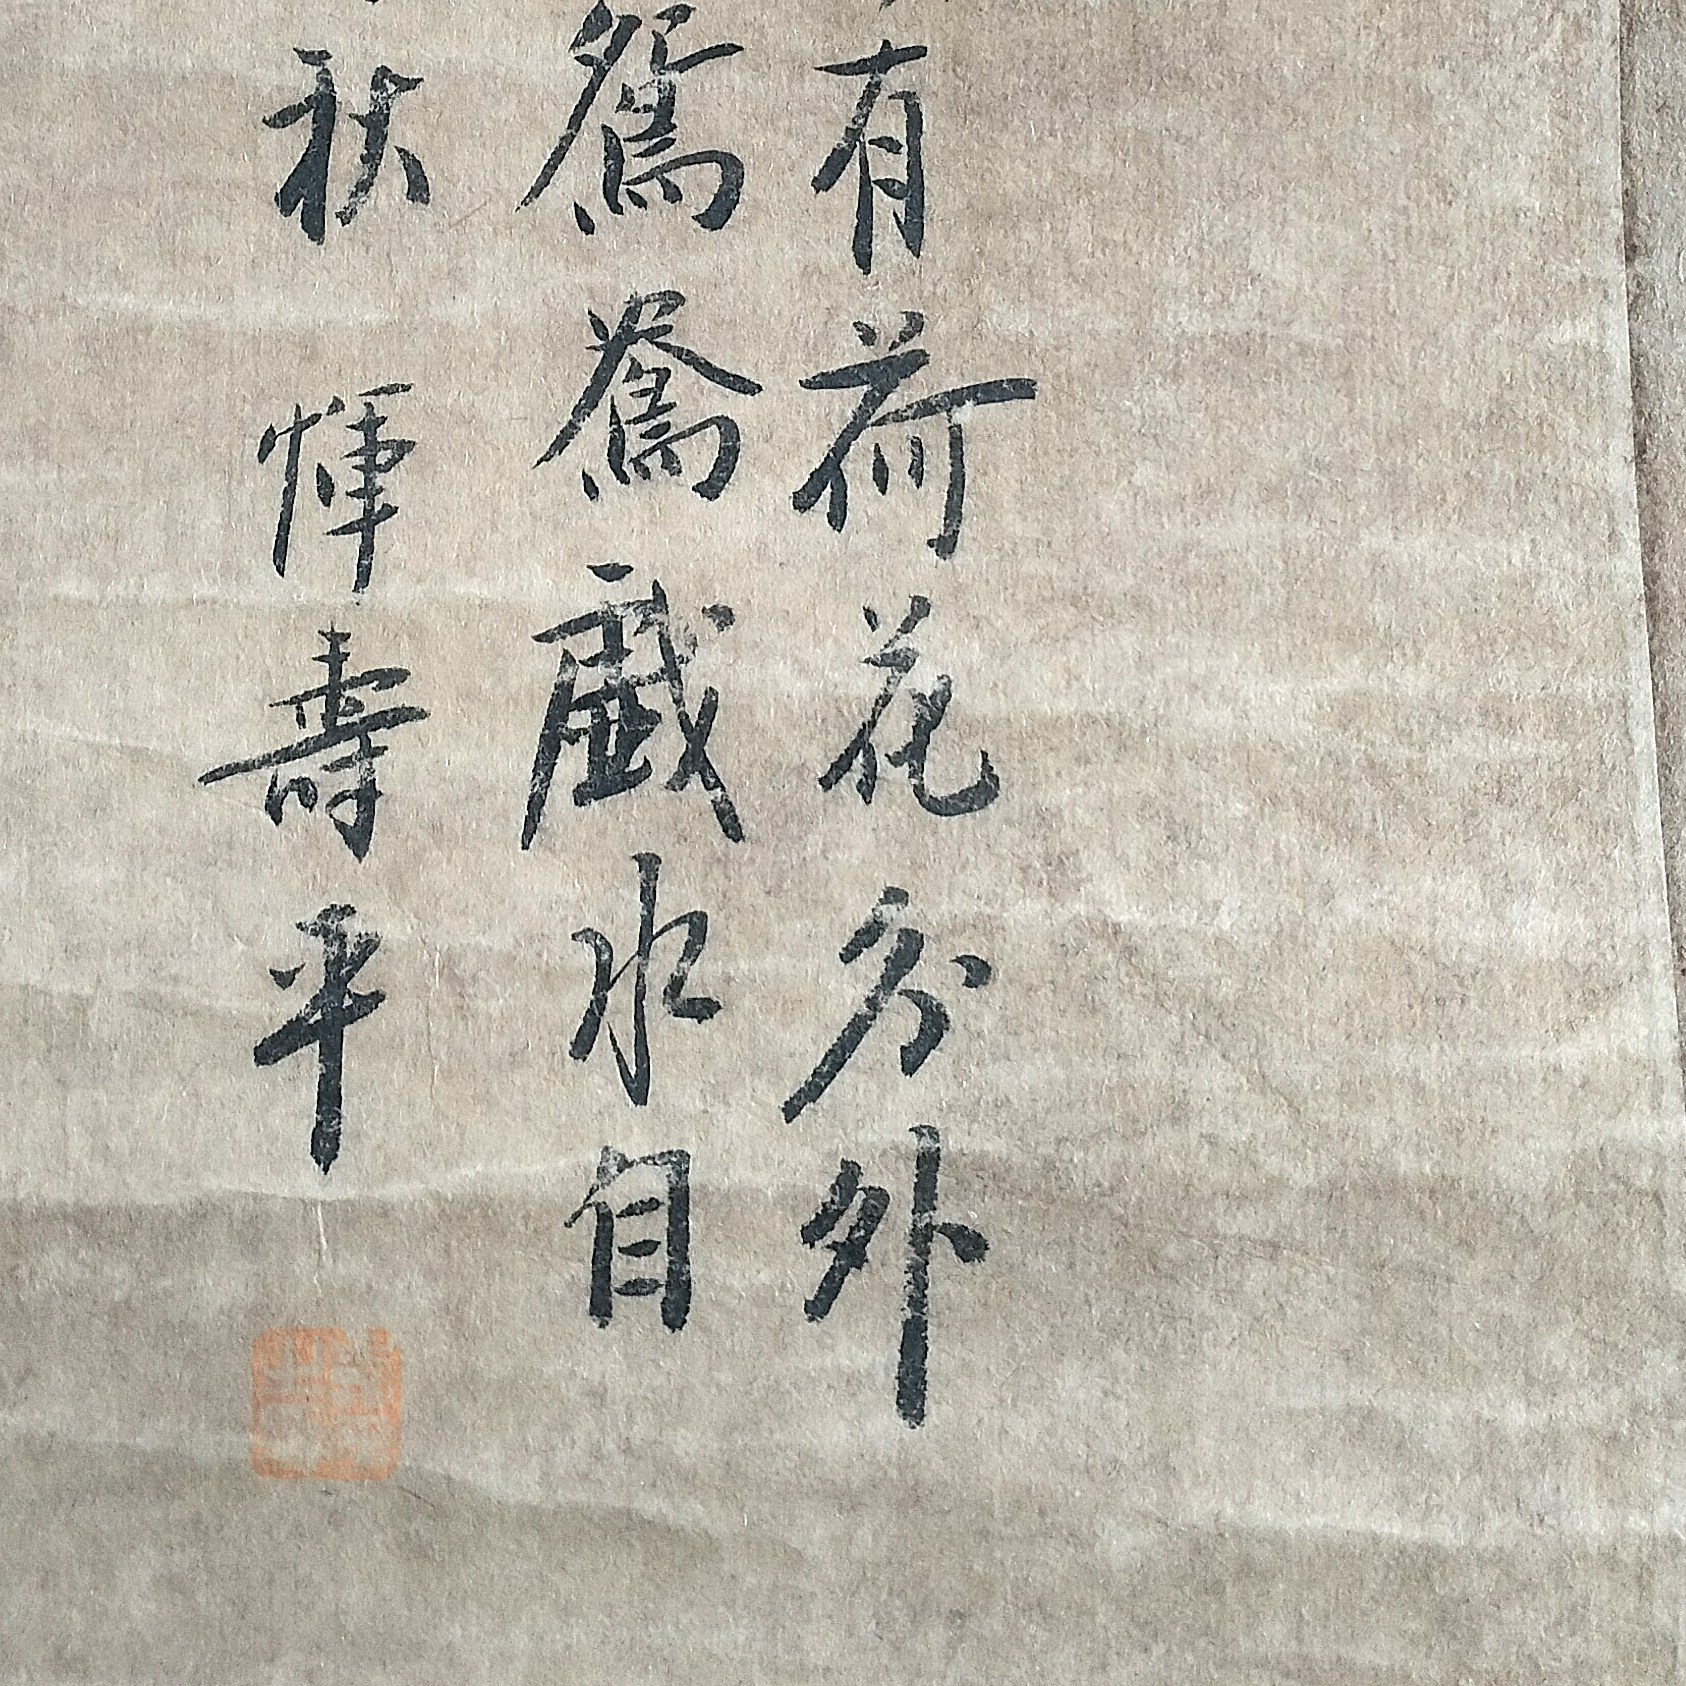 有荷花分外
鴛鴦戲水自
秋 惲壽平